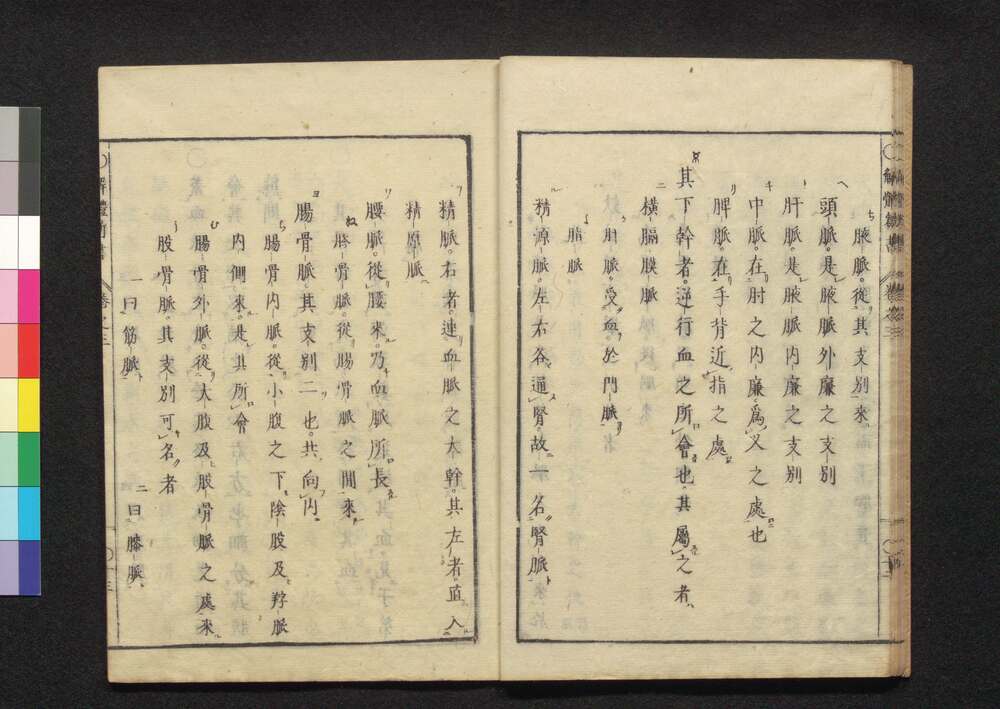 ち 腋脈。從其支別來。
へ 頭脈。是腋脈外廉之支別
肝脈。是腋脈內廉之支別
キ 中脈。在肘之內廉。爲义之處也
リ 脾脈。在手背近指之處
其下幹者。逆行血之所會也。其屬之者、
ニ 橫膈膜脈
肝脈。受血於門脈。
脂脈
精源脈。左右各通腎。故一名腎脈、
精脈。右者。連血脈之大幹。其左者。直入
精原脈
腰脈。從腰來。乃血脈所長
ね 胯骨脈。從腸骨脈之間來
ヨ 腸骨脈。其支別二也。共向內。
ち 腸骨內脈。從小腹之下。陰股及脝脈
內側來。是其所會
む 腸骨外脈。從大腹及股骨脈之處來
股骨脈。其支別可名者
一曰筋脈、 二曰膝脈、
解體新書 卷之三